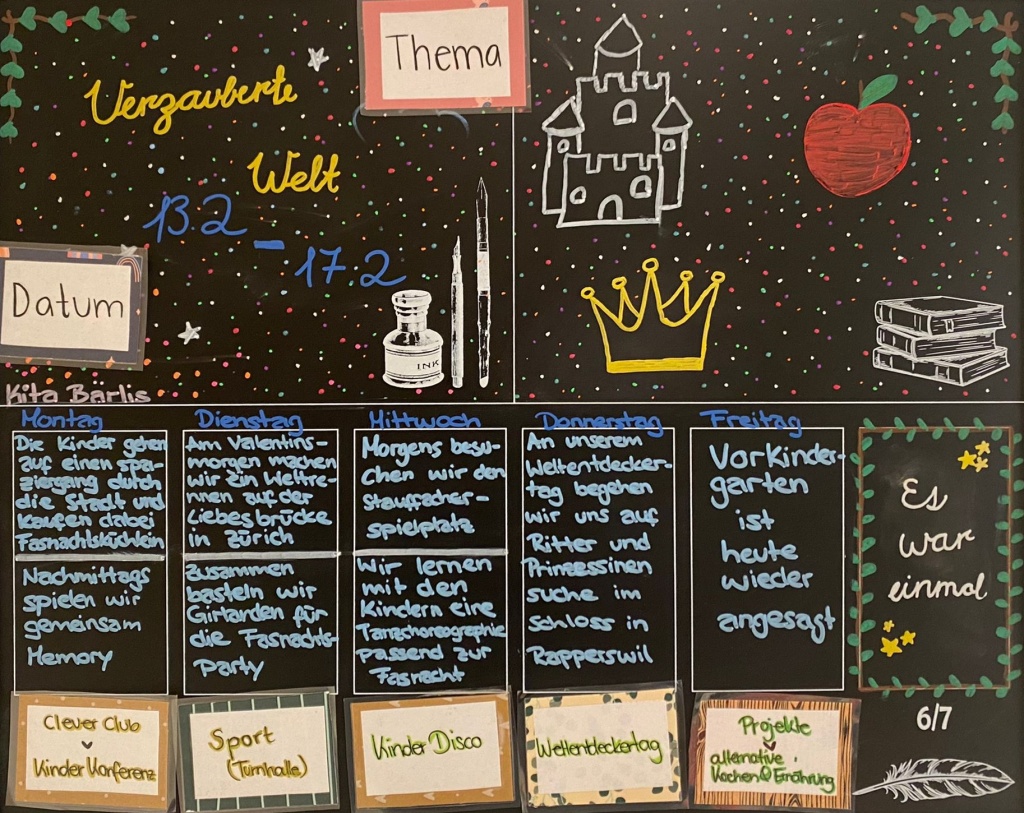 Thema
Verzauberte
Welt
13.2 - 17.2
Datum
INK
Kita Bärlis
Montag
Die Kinder gehen
auf einen spa-
ziergang durch
die Stadt und
kaufen dabei
Fasnachtsküchlein
Nachmittags
spielen wir
gemeinsam
Memory
Dienstag
Am Valentins-
morgen machen
wir ein Wettre-
nnen auf der
Liebesbrücke
in Zürich
Zusammen
basteln wir
Girlanden für
die Fasnachts-
Party
Mittwoch
Morgens besu-
chen wir den
Stauffacher-
spielplatz
Wir lernen
mit den
Kindern eine
Tanzchoreographie
passend zur
Fasnacht
Donnerstag
An unserem
Weltentdecker-
tag begeben
wir uns auf
Ritter und
Prinzessinen
suche im
Schloss in
Rapperswil
Freitag
Vorkinder-
garten
ist
heute
wieder
angesagt
Es
war
einmal
Clever Club
Kinder Konferenz
Sport
(Turnhalle)
Kinder Disco
Weltentdeckertag
Projekte
alternative
Kochen & Ernährung
6/7